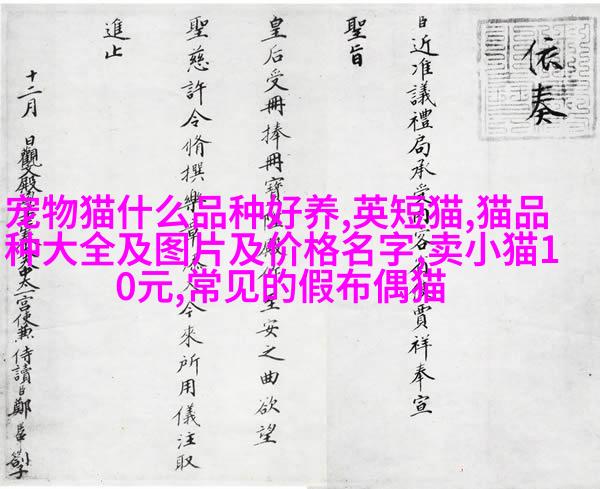 依奏
臣近准議禮局承受賈祥奉宣
聖旨
皇后受冊捧冊寶至安之曲欲望
聖慈許令脩撰樂今來所用儀注取
進止
十二月 日觀文殿太一宮使兼侍讀臣鄭
宠物猫什么品种好养,英短猫,猫品
种大全及图片及价格名字,卖小猫1
0元,常见的假布偶猫